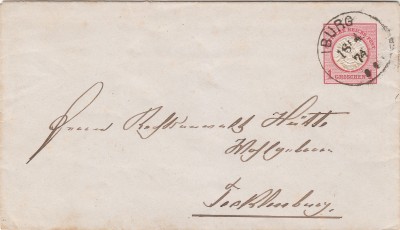 IBURG
18/4
74
GROSCHEN
Herrn Rechtsanwalt Hütte
Wohlgeboren
Tecklenburg.